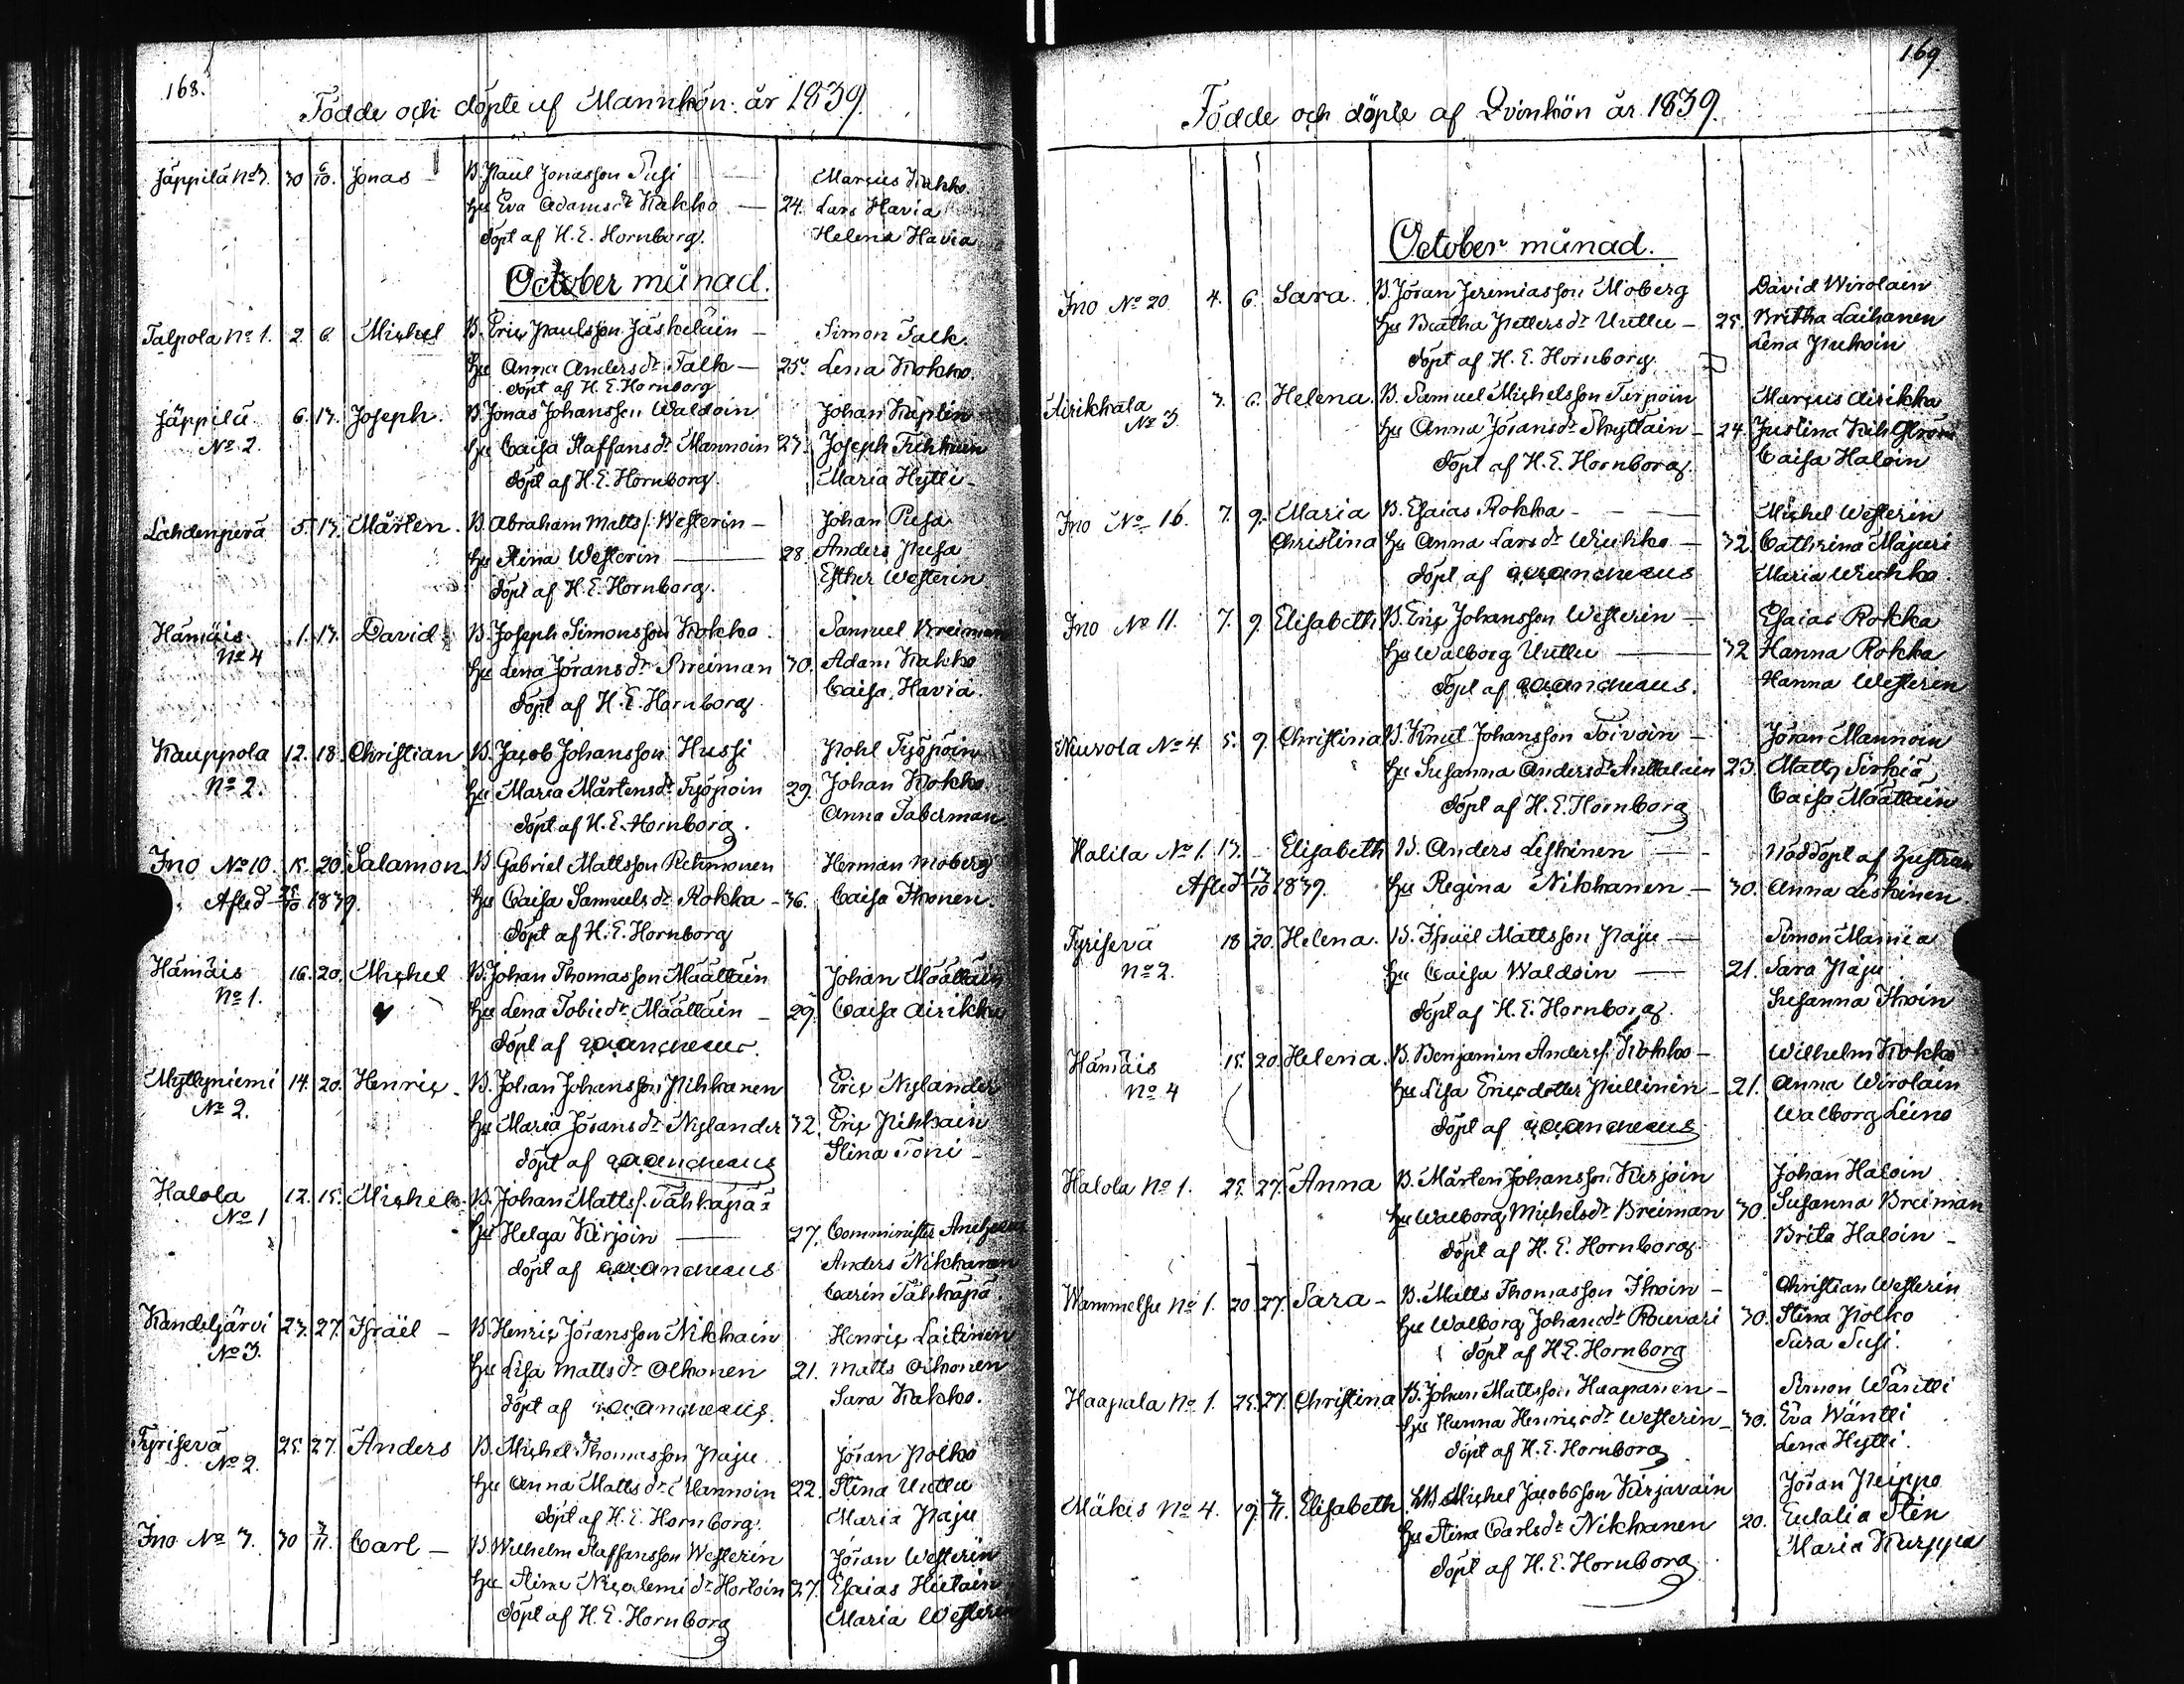 168.
Födde och döpte af Mannkön år 1839.
Jäppilä No 3. 30 6/10. Jonas B. Paul Jonasson Susi Marcus Kakko.
Hu Eva Adamsdr Kakko 24. Lars Havia
döpt af H. E. Hornborg. Helena Havia
October månad.
Talpola No 1. 2. 6. Michel B. Eric Paulsson Jäskeläin Simon Falk.
Hu Anna Andersdr Falk 25. Lena Kokko.
döpt af H. E. Hornborg
Jäppilä 6. 13. Joseph. B. Jonas Johansson Waldoin Johan Kaplin
No 2. Hu Caisa Staffansdr Mannoin 27. Joseph
döpt af H. E. Hornborg. Maria Hytti
Lahdenperä 5. 13. Mårten. B. Abraham Matts/. Westerin Johan Pusa
Hu Stina Westerin 28. Anders Pusa
döpt af H. E. Hornborg. Esther Westerin
Hämäis 1. 13. David B. Joseph Simonsson Kokko. Samuel Breiman
No 4 Hu Lena Göransdr Breiman 30. Adam Kakko
döpt af H. E. Hornborg Caisa Havia.
Kauppola 12. 18. Christian B. Jacob Johansson Hussi Pohl Työpöin
No 2. Hu Maria Mårtensdr Työpöin 29. Johan Kokko.
döpt af H. E. Hornborg. Anna Taberman
Ino No 10. 15. 20. Salamon B. Gabriel Mattsson Rehmonen Herman Moberg
Afled 25/10 1839. Hu Caisa Samuelsdr Rokka 36. Caisa Ihonen.
döpt af H. E. Hornborg
Hämäis 16. 20. Michel B. Johan Thomasson Määttäin Johan Määttäin
No 1. Hu Lena Tobiedr Määttäin 29. Caisa Airikka
döpt af
Myllyniemi 14. 20. Henric B. Johan Johansson Pihkanen Eric Nylander
No 2. Hu Maria Göransdr Nylander 32. Eric Pihkain
döpt af Stina Toni
Halola 12. 15. Michel B. Johan Matts/. Tähkäpää
No 1 Hu Helga Kirjoin 27. Comminister
döpt af Anders Nikkanen
Carin Tähkäpä
Kandeljärvi 23. 27. Israël B. Henric Göransson Nikkain Henric Laitinen
No 3. Hu Lisa Mattsdr Olkonen 21. Matts Olkonen
döpt af Sara Kakko.
Tyrisevä 25. 27. Anders B. Michel Thomasson Paju Jöran Polko
No 2. Hu Anna Mattsdr Mannoin 22. Stina Uuttu
döpt af H. E. Hornborg. Maria Paju
Ino No 3. 30 3/11. Carl B. Wilhelm Staffansson Westerin Jöran Westerin
Hu Stina 27. Esaias Hietain
döpt af H. E. Hornborg Maria Westerin
169
Födde och döpte af Qvinkön år 1839.
October månad.
Ino No 20 4. 6. Sara. B. Jöran Jeremiasson Moberg David Wirolain
Hu Beatha Pettersdr Uuttu 25. Britha Laihanen
döpt af H. E. Hornborg Lena Puhoin
Airikkala 3. 6. Helena B. Samuel Michelsson Turpoin Marcus Airikka
No 3. Hu Anna Göransdr Skyttäin 24. Justina
döpt af H. E. Hornborg. Caisa Haloin
Ino No 16. 7. 9. Maria B. Esaias Rokka Michel Westerin
Christina Hu Anna Larsdr Wiukko 32. Cathrina Majuri
döpt af Maria Wiukko.
Ino No 11. 7. 9. Elisabeth B. Eric Johansson Westerin Esaias Rokka
Hu Walborg Uuttu 32 Hanna Rokka
döpt af Hanna Westerin
Neuvola No 4. 5. 9. Christina B. Knut Johansson Toivoin Jöran Mannoin
Hu Susanna Andersdr 23. Matts Sirkiä
döpt af H. E. Hornborg Caisa Määttäin
Halila No 1. 13. Elisabeth B. Anders Leskinen Nöddöpt af hustrun
Afled 13/10 1839. Hu Regina Nikkanen 30. Anna Leskinen.
Tyrisevä 18 20. Helena. B. Israël Mattsson Paju Simon Mania
No 2. Hu Caisa Waldoin 21. Sara Paju
döpt af H. E. Hornborg. Susanna Ihoin
Hämäis 15. 20. Helena. B. Benjamin Anders/. Kokko Wilhelm Kokko
No 4 Hu Lisa Ericsdotter Pullinen 21. Anna Wirolain
döpt af Walborg Leino
Halola No 1. 25. 27. Anna B. Mårten Johansson Kirjoin Johan Haloin
Hu Walborg Michelsdr Breiman 30. Susanna Breiman
döpt af H. E. Hornborg. Brita Haloin
Wammelsu No 1. 20. 27. Sara B. Matts Thomasson Ihoin Christian Westerin
Hu Walborg Johansdr Rouvari 30. Stina Polko
döpt af H. E. Hornborg Sara Susi.
Haapala No 1. 25. 27. Christina B. Johan Mattsson Haapanen Simon Wäntti
Hu Hanna Henricsdr Westerin 30. Eva Wäntti
döpt af H. E. Hornborg Lena Hytti.
Mäkis No 4. 19. 3/11. Elisabeth B. Michel Jacobsson Kirjavain Jöran Peippo
Hu Stina Carlsdr Nikkanen 20. Eulalia Sten
döpt af H. E. Hornborg Maria Kurppa